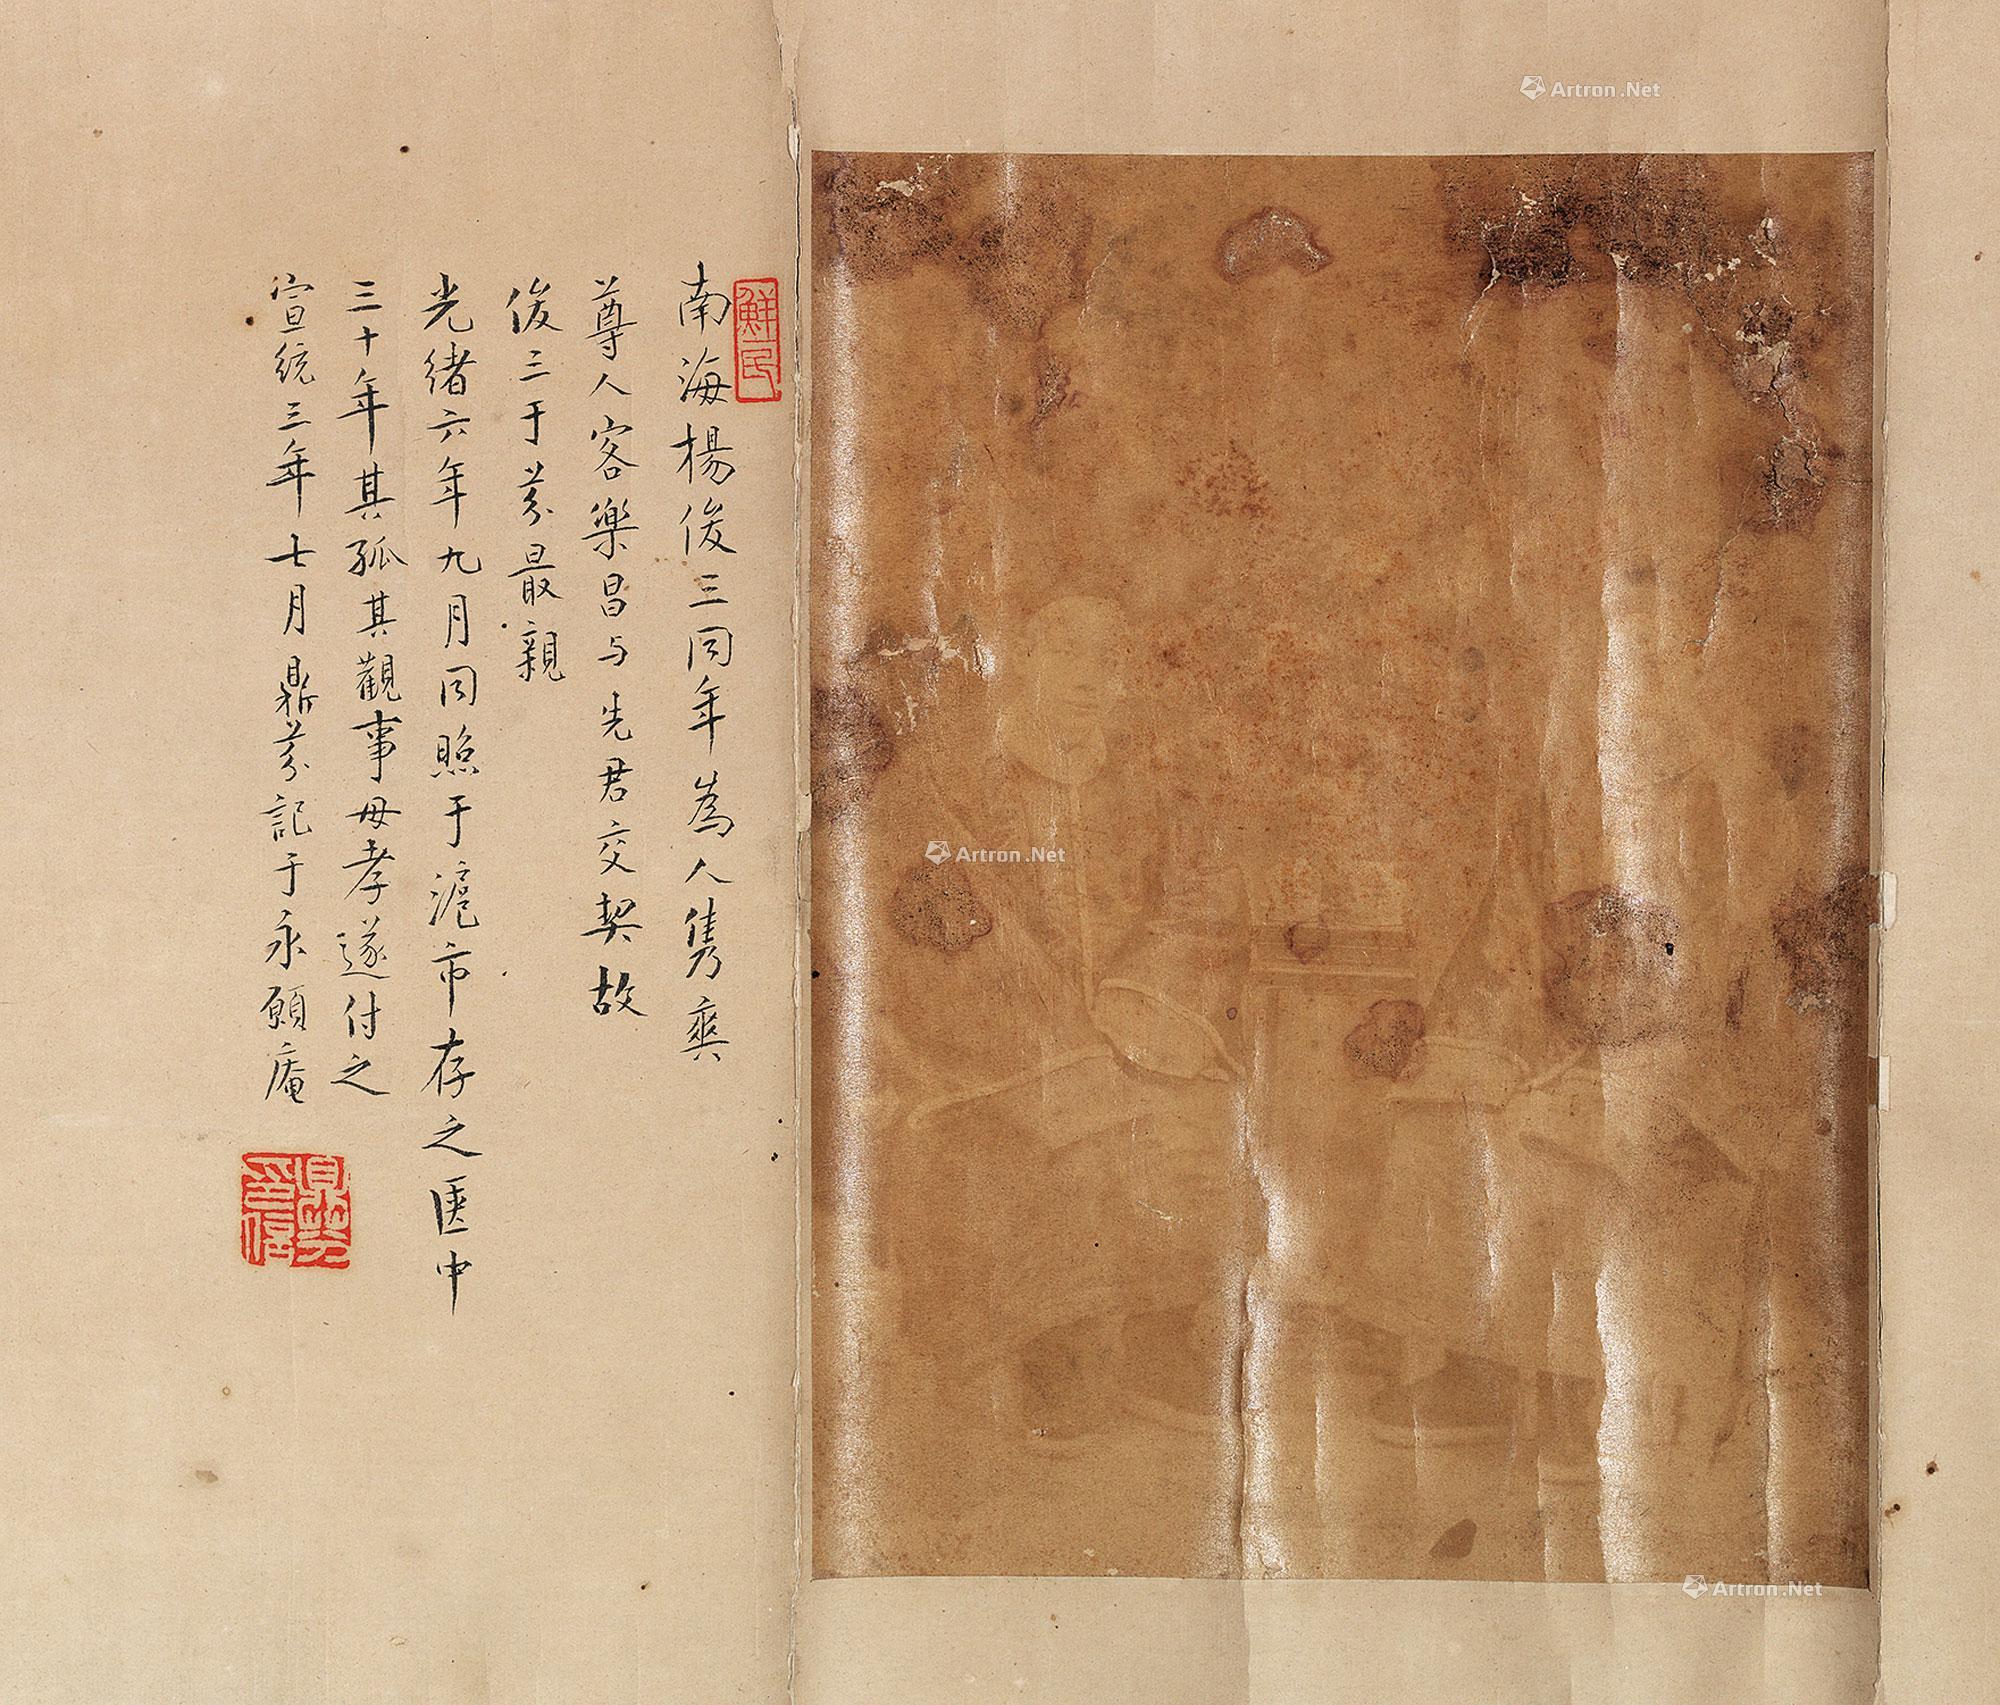 鮮民
南海楊俊三同年為人雋爽
尊人客樂昌与先君交契故
俊三于芬最親
光緒六年九月同照于滬市存之匧中
三十年其孤其觀事母孝遂付之
宣統三年七月鼎芬記于永願庵
鼎芬印信
Artron.Net
Artron.Net
Artron.Net